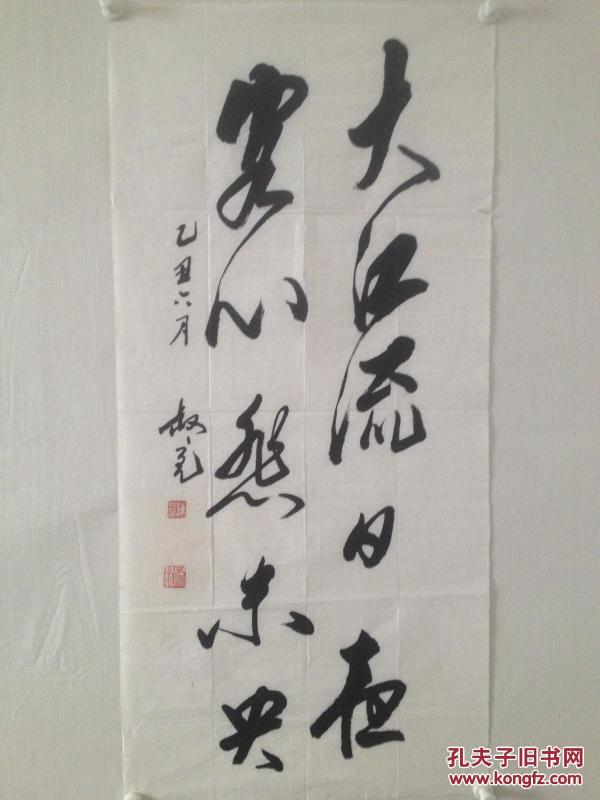 大江流日夜
客心悲未央
乙丑六月
孔夫子旧书网
www.kongfz.com